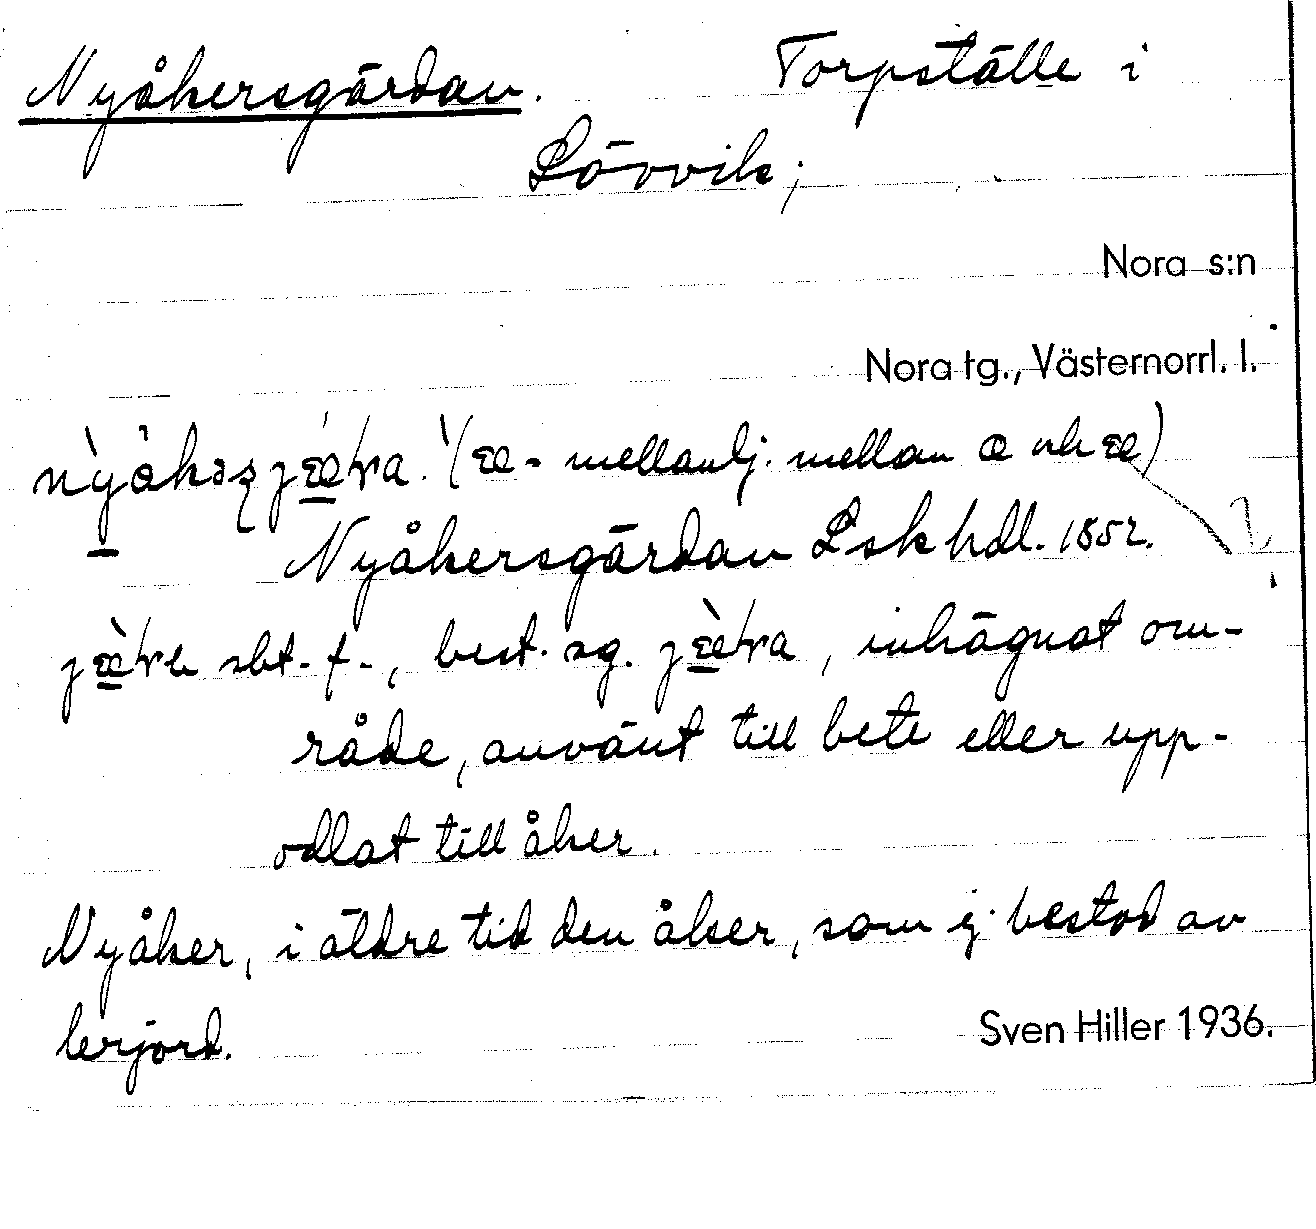 Nyåkersgärdan. Torpställe i
Lövvik;
Nora s:n
Nora tg., Västernorrl. l.
(æ - mellanlj. mellan a och æ)
Nyåkersgärdan Lsk hdl. 1852.
sbt. f., best. sg. , inhägnat om-
råde, använt till bete eller upp-
odlat till åker.
Nyåker, i äldre tid den åker, som ej bestod av
lerjord.
Sven Hiller 1936.